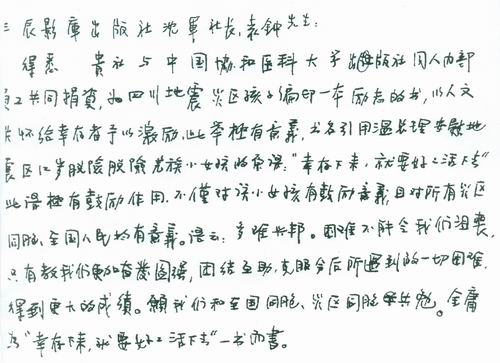 三辰影庫出版社沈軍社长、袁钟先生:
得悉 貴社与中国协和医科大学出版社同人内部
员工共同捐資,为四川地震災区孩子编印一本励志的书,以人文
关怀给幸存者予以激励,此举極有意義,书名引用温总理安慰地
震区12岁脱险羌族小女孩的:"幸存下来,就要好=活下去"
此语極有鼓励作用,不僅对该小女孩有鼓励意義,且对所有災区
同胞、全国人民均有意義。语云:多难兴邦。困难不能令我们沮喪,
只有教我们更加奋發圖强,团结互助,克服今后所遇到的一切困难,
得到更大的成績。願我们和全国同胞、災区同胞共勉。金庸
为"幸存下来,就要好=活下去"一书而書。